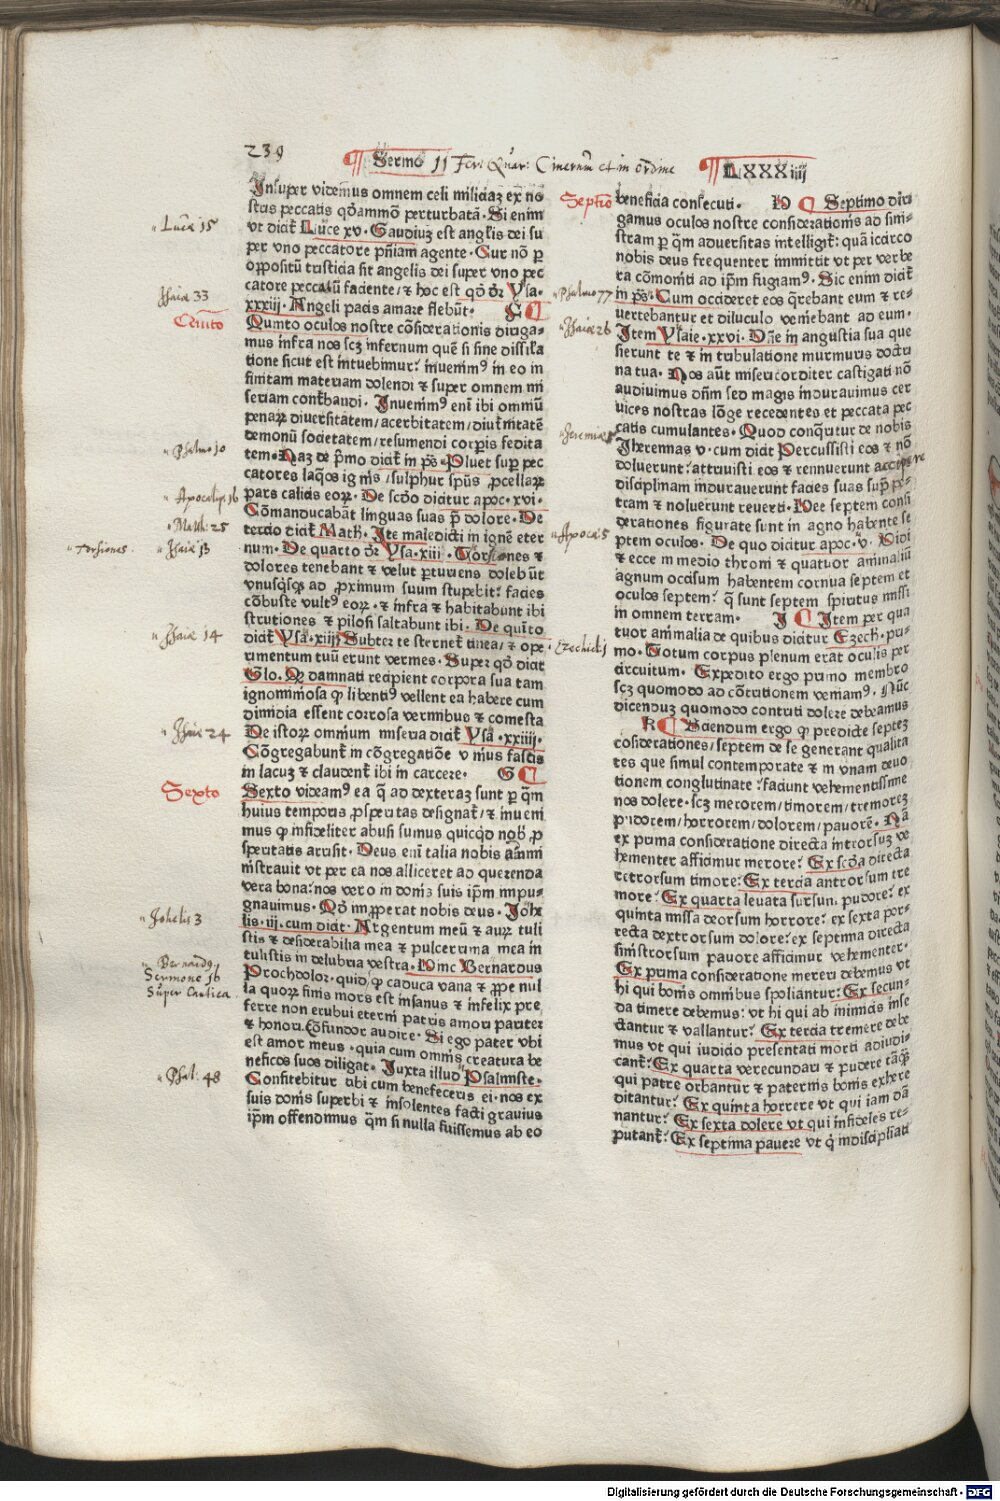 239
¶ Sermo 11 Fer: Quar: Cinerum et in ordine ¶ LXXXiiij
Insuper videmus omnem celi miliciaz ex no
stris peccatis qdāmmō perturbatā. Si enim
„ Lucæ 15
vt dicit Luce xv. Gaudiuz est angelis dei su
per vno peccatore pñiam agente. Cur nō p
oppositū tristicia sit angelis dei super vno pec
catore peccatū faciente / ⁊ hoc est qd dr Ysa.
Isaiæ 33
xxxiii. Angeli pacis amare flebūt. F ¶
Quinto
Quinto oculos nostre cōsiderationis diriga-
mus infra nos scz infernum quē si sine dissila
tione sicut est intuebimur: inueniem9 in eo in
finitam materiam dolendi ⁊ super omnem mi
seriam contbandi. Inueniem9 eni ibi omniū
penaꝝ diuersitatem / acerbitatem / diutnitatē
demonū societatem / resumendi corpis fedita
„ Psalmo 10
tem. Naz de pmo dicit in ps. Pluet sup pec
catores laqos ignis / sulphur spūs pcellaꝝ
„ Apocalip: 16
pars calicis eoꝝ. De scdo dicitur apoc. xvi.
Cōmanducabāt linguas suas p dolore. De
„ Matth: 25
tercio dicit Math. Ite maledicti in ignē eter
„ Torsiones. „ Isaiæ 13
num. De quarto dr Ysa. xiii. Torsiones ⁊
dolores tenebant ⁊ velut pturiens dolebūt
vnusqsqs ad pximum suum stupebit: facies
cōbuste vult9 eoꝝ. ⁊ infra ⁊ habitabunt ibi
strutiones ⁊ pilosi saltabunt ibi. De quīto
„ Isaiæ 14
dicit Ysa. xiiij Subter te sternet tinea / ⁊ ope
rimentum tuū erunt vermes. Super qd dicit
Glo. Qz damnati recipient corpora sua tam
ignominiosa qp libenti9 vellent ea habere cum
dimidia essent corrosa vermibus ⁊ comesta
„ Isaiæ 24
De istoꝝ omnium miseria dicit Ysa. xxiiij.
Cōgregabunt in cōgregatiōe vnius fascis
in lacuz ⁊ claudent ibi in carcere. G ¶
Sexto
Sexto videam9 ea q ad dexteraz sunt p qm
huius temporis psperitas designat / ⁊ inueni
mus qp infideliter abusi sumus quicqd nob p
speritatis arrisit. Deus eni talia nobis admi
nistrauit vt per ea nos alliceret ad querenda
vera bona: nos vero in donis suis ipm impu-
„ Johelis 3
gnauimus. Qd impperat nobis deus. Johe
lis. iii. cum dicit. Argentum meū ⁊ auꝝ tuli
stis ⁊ desiderabilia mea ⁊ pulcerrima mea in
„ Bernard9
Sermone 16
Super Cantica.
tulistis in delubra vestra. Hinc Bernardus
Prochdolor. quid qp caduca vana ⁊ ppe nul
la quoꝝ finis mors est insanus ⁊ infelix pre
ferre non erubui eterni patris amori pariter
⁊ honori. Cōfundor audire. Si ego pater vbi
est amor meus. quia cum omnis creatura be
„ Psal: 48
neficos suos diligat. Iuxta illud Psalmiste.
Confitebitur tibi cum benefeceris ei. nos ex
suis donis superbi ⁊ insolentes facti grauius
ipm offendimus qm si nulla fuissemus ab eo
Septīo
beneficia consecuti. H ¶ Septimo diri
gamus oculos nostre considerationis ad sini-
stram p qm aduersitas intelligit: quā icirco
nobis deus frequenter immittit vt per verbe
ra cōmoniti ad ipm fugiam9. Sic enim dicit
„ Psalmo 77
in ps. Cum occideret eos qrebant eum ⁊ re-
uertebantur et diluculo veniebant ad eum.
„ Isaiæ 26
Item Ysaie. xxvi. Dñe in angustia sua que
sierunt te ⁊ in tribulatione murmuris doctri
na tua. Nos aūt misericorditer castigati nō
audiuimus dñm sed magis indurauimus cer
uices nostras lōge recedentes et peccata pec
catis cumulantes. Quod conqritur de nobis
„ Jeremiæ 5
Iheremias v. cum dicit Percussisti eos ⁊ nō
doluerunt: attriuisti eos ⁊ rennuerunt accipere
disciplinam indurauerunt facies suas sup pe-
tram ⁊ noluerunt reuerti. Hee septem consi
derationes figurate sunt in agno habente se
„ Apocæ: 5
ptem oculos. De quo dicitur apoc. v. Vidi
⁊ ecce in medio throni ⁊ quatuor animaliū
agnum occisum habentem cornua septem et
oculos septem: q sunt septem spiritus missi
in omnem terram. I ¶ Item per qua
tuor animalia de quibus dicitur Ezech. pri-
„ Ezechiel: 1
mo. Totum corpus plenum erat oculis per
circuitum. Expedito ergo primo membro
scz quomodo ad cōtritionem veniam9. Nūc
dicenduz quomodo contriti dolere debeamus
K ¶ Sciendum ergo qp predicte septez
cōsiderationes / septem de se generant qualita
tes que simul contemporate ⁊ in vnam deuo
tionem conglutinate: faciunt vehementissime
nos dolere. scz merorem / timorem / tremorez
pudorem / horrorem / dolorem / pauorē. Nā
ex prima consideratione directa introrsuz ve
hementer afficimur merore: Ex scda directa
retrorsum timore: Ex tercia antrorsum tre
more: Ex quarta leuata sursum pudore: ex
quinta missa deorsum horrore: ex sexta por-
recta dextrorsum dolore: ex septima directa
sinistrorsum pauore afficimur vehementer.
Ex prima consideratione mereri debemus vt
hi qui bonis omnibus spoliantur: Ex secun-
da timere debemus: vt hi qui ab inimicis inse
ctantur ⁊ vallantur: Ex tercia tremere debe
mus vt qui iudicio presentati morti adiudi-
cant: Ex quarta verecundari ⁊ pudere tāqp
qui patre orbantur ⁊ paternis bonis exhere
ditantur: Ex quinta horrere vt qui iam dā
nantur: Ex sexta dolere vt qui infideles re-
putant: Ex septima pauere vt q indisciplinati
Digitalisierung gefördert durch die Deutsche Forschungsgemeinschaft - DFG